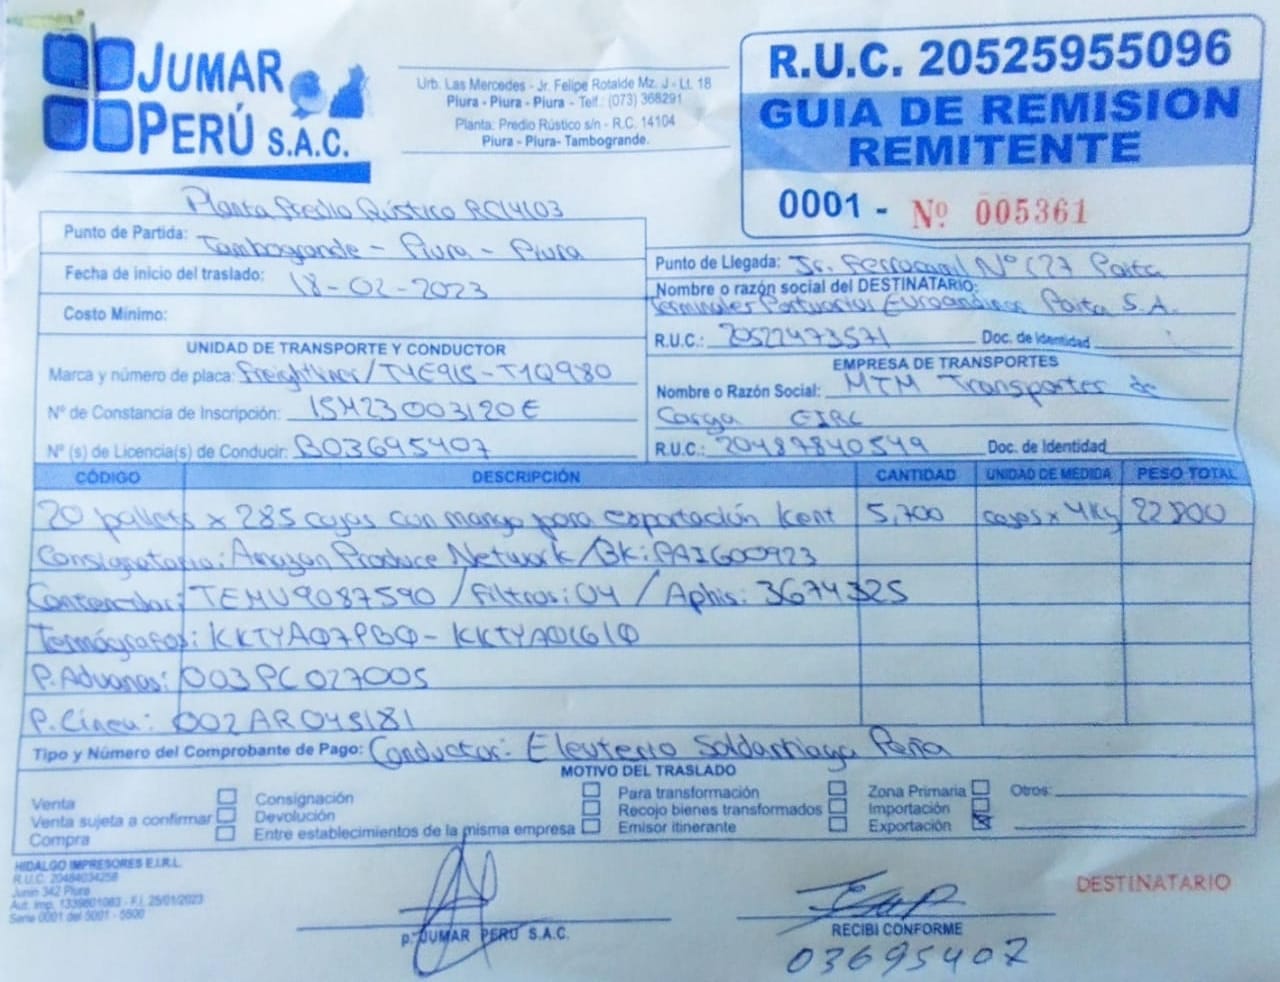 JUMAR
PERÚ S.A.C.
Urb. Las Mercedes - Jr. Felipe Rotalde Mz. J - Lt. 18
Piura - Piura - Piura - Telf.: (073) 368291
Planta: Predio Rústico s/n - R.C. 14104
Piura - Piura- Tambogrande.
R.U.C. 20525955096
GUIA DE REMISION
REMITENTE
0001 - Nº 005361
Planta Predio Rústico RC14103
Punto de Partida: Tambogrande - Piura - Piura
Fecha de inicio del traslado: 18-02-2023
Costo Mínimo:
Punto de Llegada: Jr. Ferrocarril Nº 127 Paita
Nombre o razón social del DESTINATARIO:
Terminales Portuarios Euroandinos Paita S.A.
R.U.C.: 20522473571 Doc. de Identidad
UNIDAD DE TRANSPORTE Y CONDUCTOR
Marca y número de placa: Freightliner/T4E915-T1Q980
Nº de Constancia de Inscripción: 15M23003120E
Nº (s) de Licencia(s) de Conducir: B03695407
EMPRESA DE TRANSPORTES
Nombre o Razón Social: MTM Transportes de
Carga EIRL
R.U.C.: 20487840549 Doc. de Identidad
CÓDIGO DESCRIPCIÓN CANTIDAD UNIDAD DE MEDIDA PESO TOTAL
20 pallets x 285 cajas con mango para exportación Kent 5,700 cajas x 4Kg 22800
Consignatario: Amazon Produce Network/BK: PAIG00923
Contenedor: TEMU9087590 / Filtros: 04 / Aphis: 3674325
Termógrafos: KKTYA07PBQ - KKTYA01610
P. Aduanas: 003PC027005
P. Línea: 002AR045181
Tipo y Número del Comprobante de Pago: Conductor: Eleuterio Peña
MOTIVO DEL TRASLADO
Venta
Venta sujeta a confirmar
Compra
Consignación
Devolución
Entre establecimientos de la misma empresa
Para transformación
Recojo bienes transformados
Emisor itinerante
Zona Primaria
Importación
Exportación
Otros:
HIDALGO IMPRESORES E.I.R.L.
R.U.C. 20484034258
Junin 342 Piura
Aut. Imp. 1339801083 - F.I. 25/01/2023
Serie 0001 del 5001 - 5500
p. JUMAR PERÚ S.A.C.
RECIBI CONFORME
03695407
DESTINATARIO